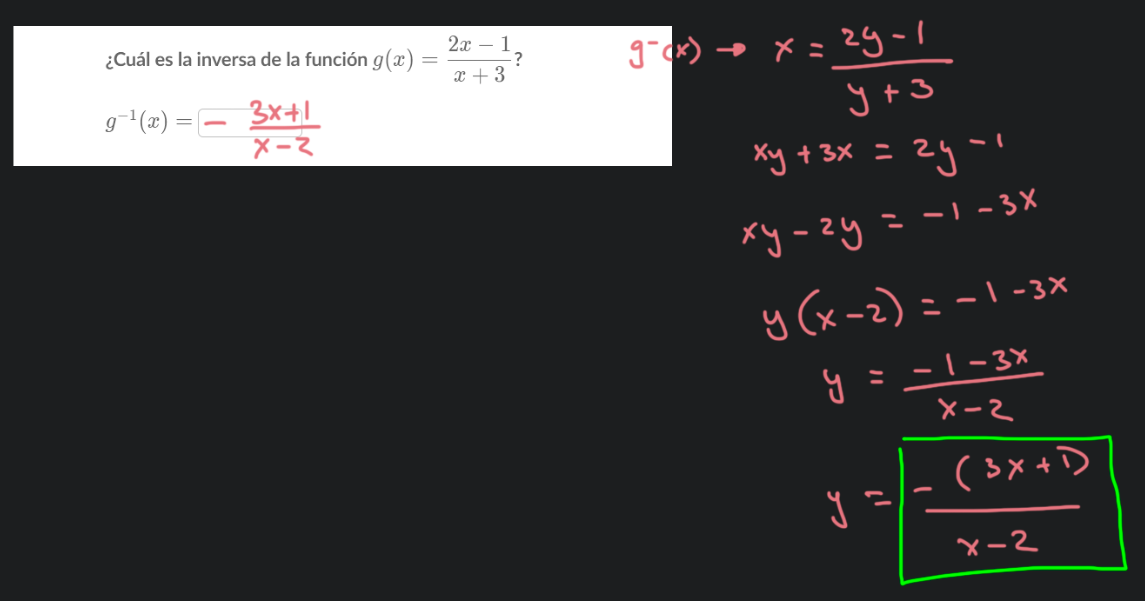 ¿Cuál es la inversa de la función g(x) = (2x − 1)/(x + 3)?
g⁻¹(x) = − (3x+1)/(x−2)
g⁻(x) → x = (2y−1)/(y+3)
xy + 3x = 2y − 1
xy − 2y = −1 − 3x
y(x−2) = −1 − 3x
y = (−1 − 3x)/(x−2)
y = −(3x+1)/(x−2)